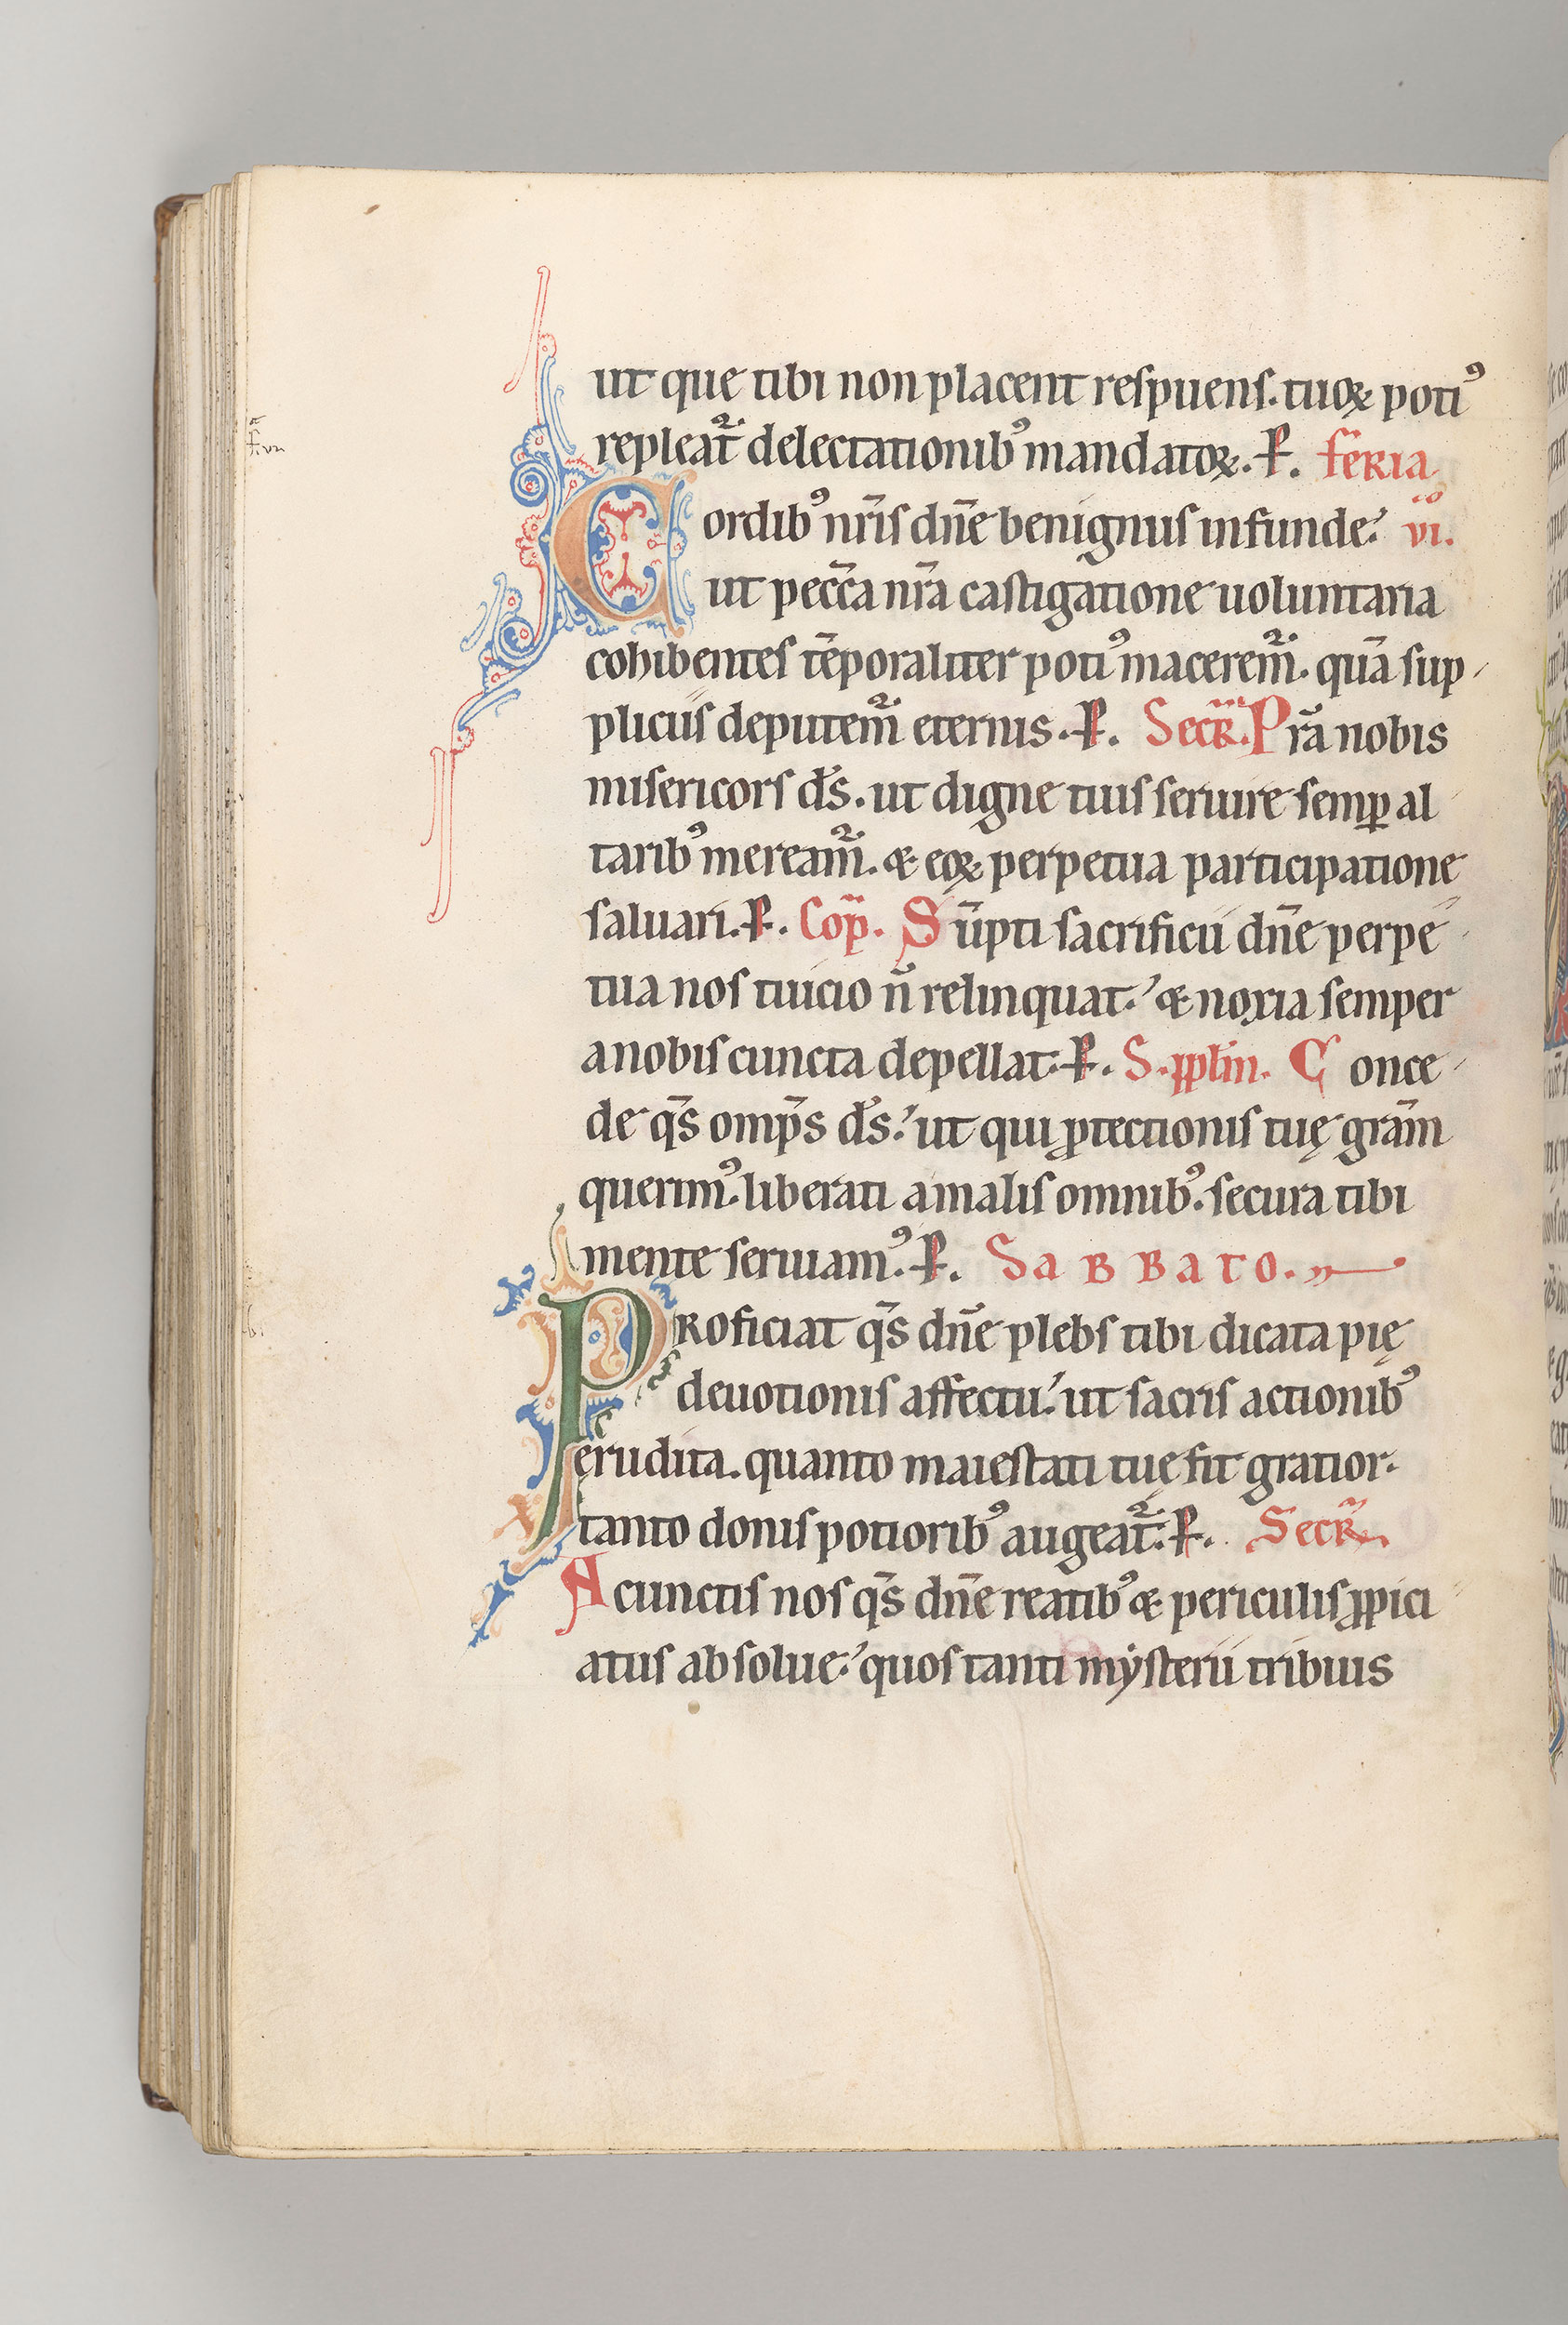 ut que tibi non placent respuens. tuoꝝ poti᷒
repleat᷑ delectationib᷒ mandatoꝝ. P̵. feria
Cordib᷒ nr̄is dn̄e benignus infunde. vi.
ut pecc̄a nr̄a castigatione uoluntaria
cohibentes tēporaliter poti᷒ macerem᷑. quā sup
pliciis deputem᷑ eternis. P̵. Secr̄. Pr̄a nobis
misericors ds̄. ut digne tuis seruire semꝑ al
tarib᷒ meream᷑. & eoꝝ perpetua participatione
saluari. P̵. Cōp. Sūpti sacrificii dn̄e perpe
tua nos tuicio n̄ relinquat. & noxia semper
a nobis cuncta depellat. P̵. S. pplm̄. Conce
de qs̄ omps̄ ds̄. ut qui ꝓtectionis tuę grām
querim᷒. liberati a malis omnib᷒. secura tibi
mente seruiam᷒. P̵. Sabbato.
Proficiat qs̄ dn̄e plebs tibi dicata pię
deuotionis affectu. ut sacris actionib᷒
erudita. quanto maiestati tuę fit gratior.
tanto donis potiorib᷒ augeat᷑. P̵. Secr̄.
A cunctis nos qs̄ dn̄e reatib᷒ & periculis ꝓpici
atus absolue. quos tanti mẏsterii tribuis